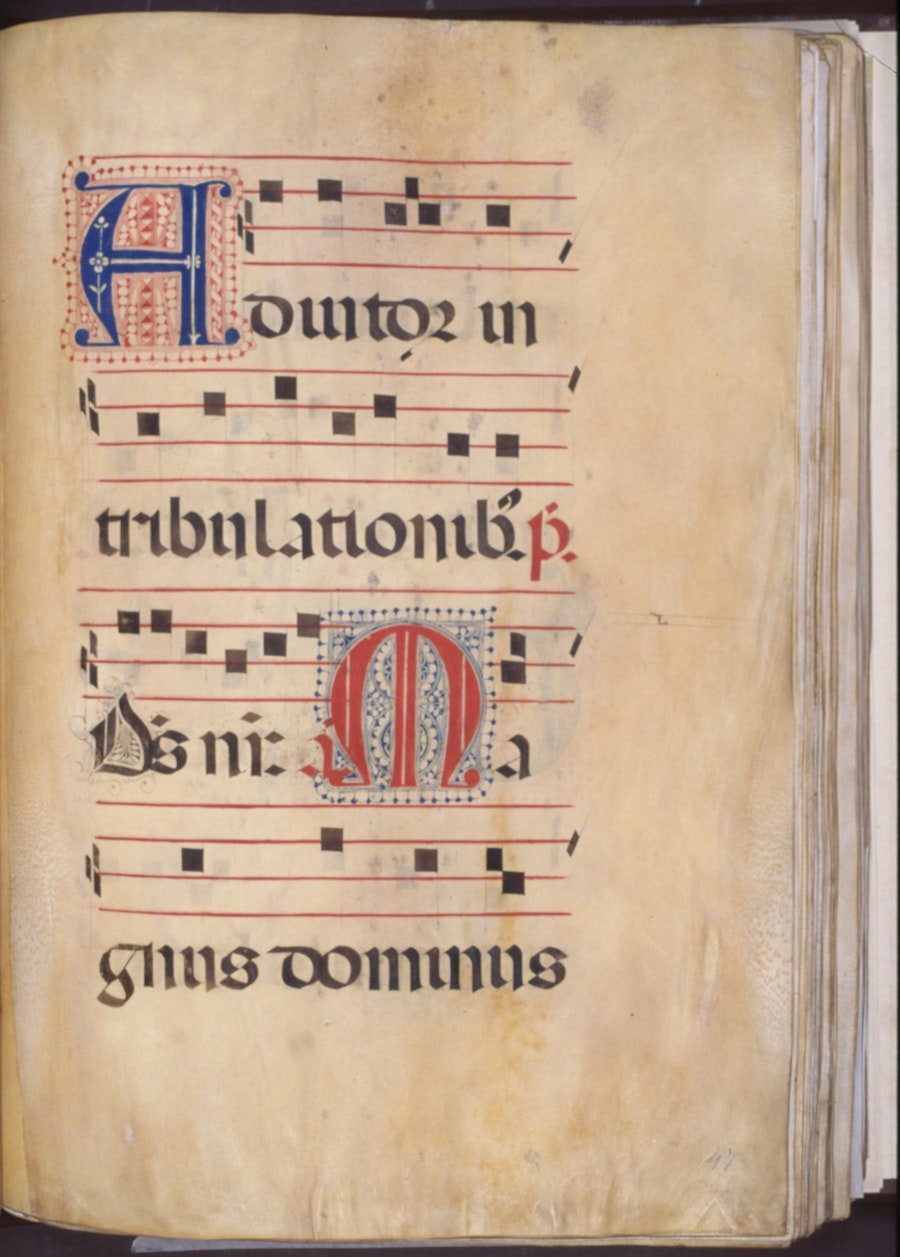 Adiutor in
tribulationib' p̄.
Ds nr̄. a Ma
gnus dominus
47